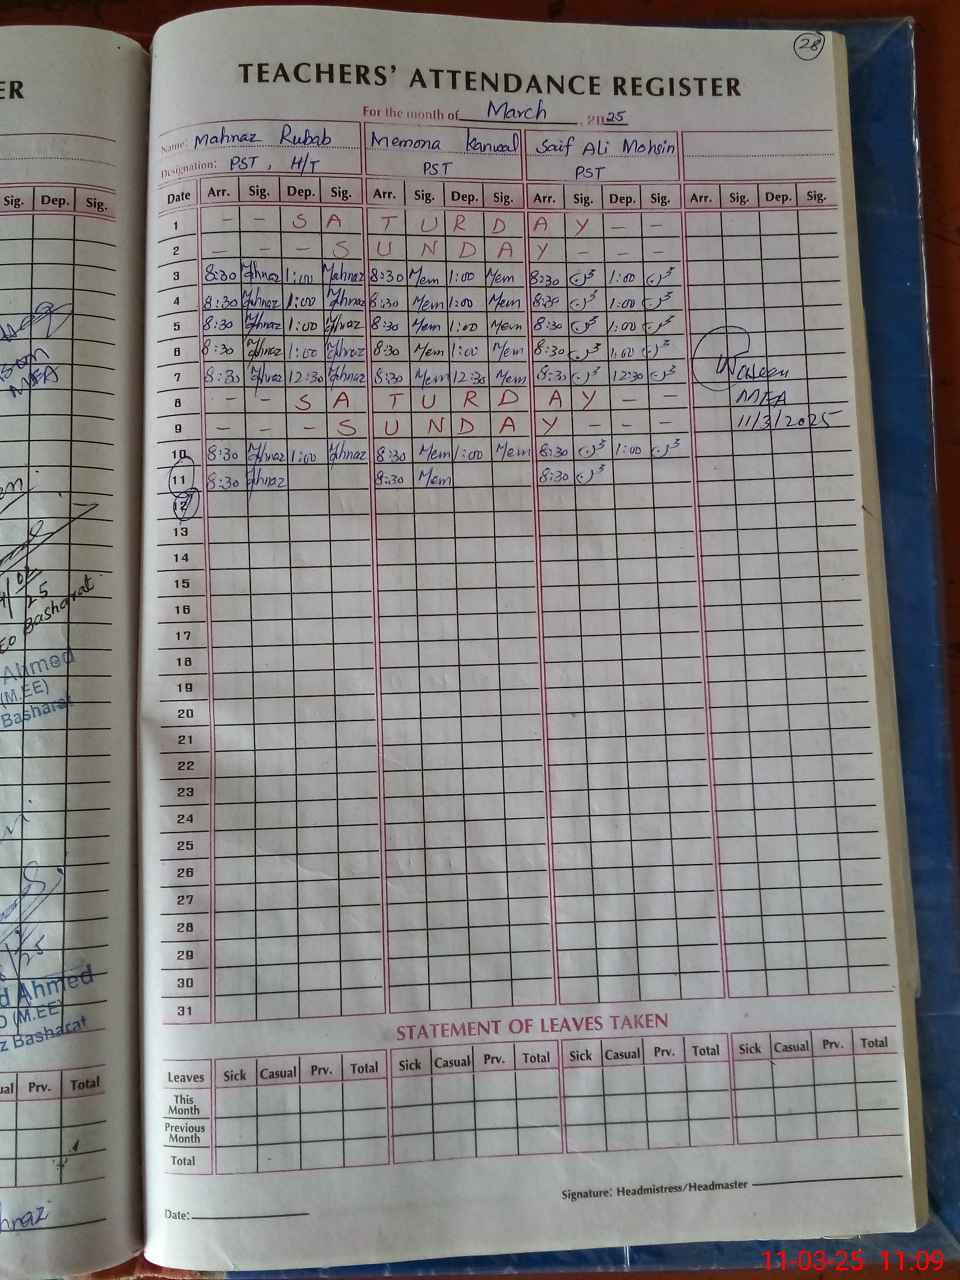 ER
Sig. Dep. Sig.
MFA
Basharat
Ahmed
(M.EE)
Basharat
Ahmed
(M.EE)
Basharat
Prv. Total
28
TEACHERS' ATTENDANCE REGISTER
For the month of March, 2025
Name: Mahnaz Rubab Memona Kanwal Saif Ali Mohsin
Designation: PST, H/T PST PST
Date Arr. Sig. Dep. Sig. Arr. Sig. Dep. Sig. Arr. Sig. Dep. Sig. Arr. Sig. Dep. Sig.
1 - - S A T U R D A Y - -
2 - - - S U N D A Y - - -
3 8:30 Mahnaz 1:00 Mahnaz 8:30 Mem 1:00 Mem 8:30 1:00
4 8:30 Mahnaz 1:00 Mahnaz 8:30 Mem 1:00 Mem 8:30 1:00
5 8:30 Mahnaz 1:00 Mahnaz 8:30 Mem 1:00 Mem 8:30 1:00
6 8:30 Mahnaz 1:00 Mahnaz 8:30 Mem 1:00 Mem 8:30 1:00
7 8:30 Mahnaz 12:30 Mahnaz 8:30 Mem 12:30 Mem 8:30 12:30 Waleen
8 - - S A T U R D A Y - - MEA
9 - - - S U N D A Y - - - 11/3/2025
10 8:30 Mahnaz 1:00 Mahnaz 8:30 Mem 1:00 Mem 8:30 1:00
11 8:30 Mahnaz 8:30 Mem 8:30
12
13
14
15
16
17
18
19
20
21
22
23
24
25
26
27
28
29
30
31
STATEMENT OF LEAVES TAKEN
Leaves Sick Casual Prv. Total Sick Casual Prv. Total Sick Casual Prv. Total Sick Casual Prv. Total
This Month
Previous Month
Total
Signature: Headmistress/Headmaster
Date:
11-03-25 11:09